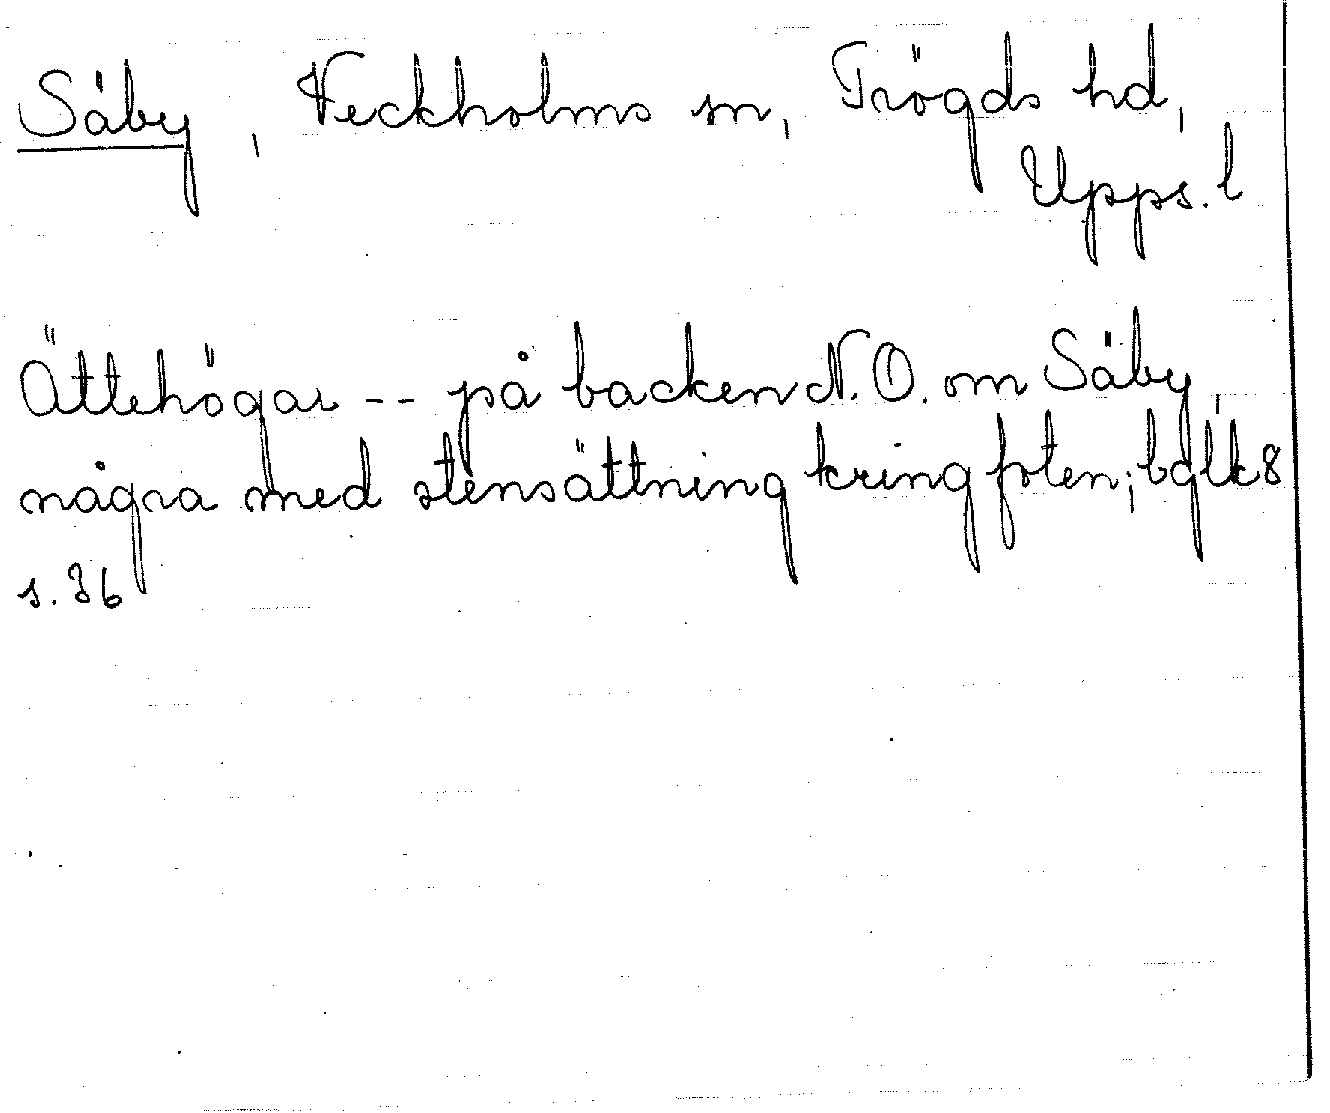 Säby, Veckholms sn, Trögds hd,
Upps. l
Ättehögar -- på backen N.O. om Säby,
några med stensättning kring foten; bglk8
s. 36